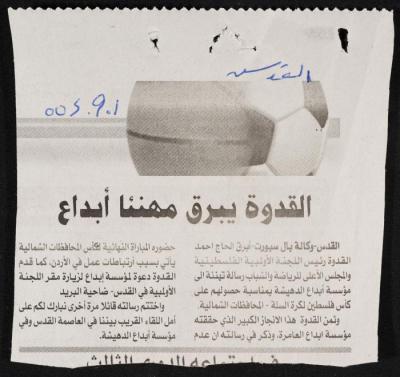 القدس
القدوة يبرق مهنئا أبداع
القدس-وكالة بال سبورت-ابرق الحاج احمد
القدوة رئيس اللجنة الأولبية الفلسطينية
والمجلس الأعلى للرياضة والشباب رسالة تهنئة الى
مؤسسة أبداع الدهيشة بمناسبة حصولهم على
كأس فلسطين لكرة السلة - المحافظات الشمالية.
وثمن القدوة هذا الانجاز الكبير الذي حققته
مؤسسة ابداع العامرة، وذكر في رسالته ان عدم
حضوره المباراة النهائية لكأس المحافظات الشمالية
يأتي بسبب ارتباطات عمل في الأردن، كما قدم
القدوة دعوة لمؤسسة ابداع لزيارة مقر اللجنة
الأولبية في القدس- ضاحية البريد
واختتم رسالته قائلا مرة أخرى نبارك لكم على
أمل اللقاء القريب بيننا في العاصمة القدس وفي
مؤسسة أبداع الدهيشة.